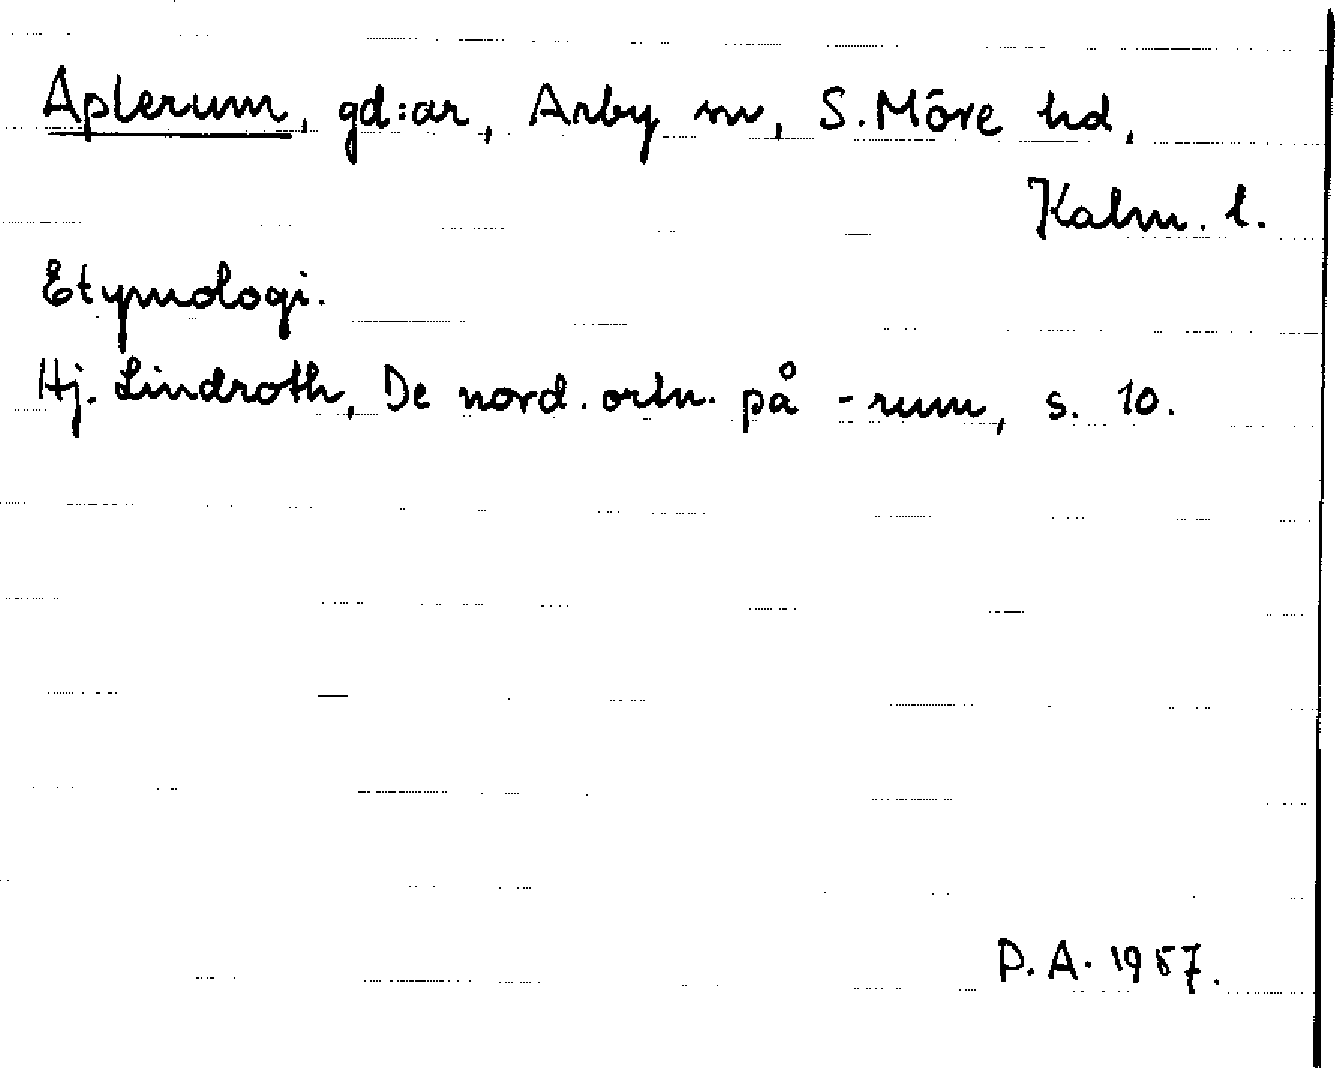 Aplerum, gd:ar, Arby sn, S. Möre hd,
Kalm. l.
Etymologi.
Hj. Lindroth, De nord. ortn. på -rum, s. 10.
P.A. 1957.